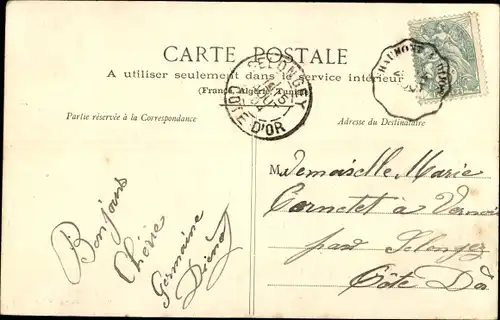 CARTE POSTALE
A utiliser seulement dans le service intérieur
(France, Algérie, Tunisie)
Partie réservée à la Correspondance
Adresse du Destinataire
SELONGEY
COTE D'OR
CHAUMONT
Bonjour
Chérie
Germaine
Mademoiselle Marie
Cornetet à
par Selongey
Côte D'or